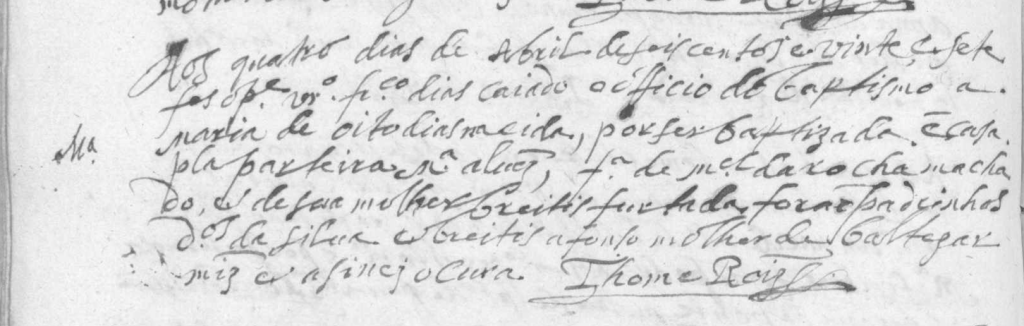 Aos quatro dias de Abril de seiscentos e vinte, e sete
fes o p.e vr.o fr.co dias caiado o officio do baptismo a
Ma.
maria de oito dias nacida, por ser baptizada ẽ casa
pla parteira M.a aluez, f.a de m.el da rocha macha
do, e de sua molher breitis furtada, foraõ padrinhos
D.os da silua e breitis afonso molher de baltezar
miz̃ e asinej o cura. Thome Roiz̃